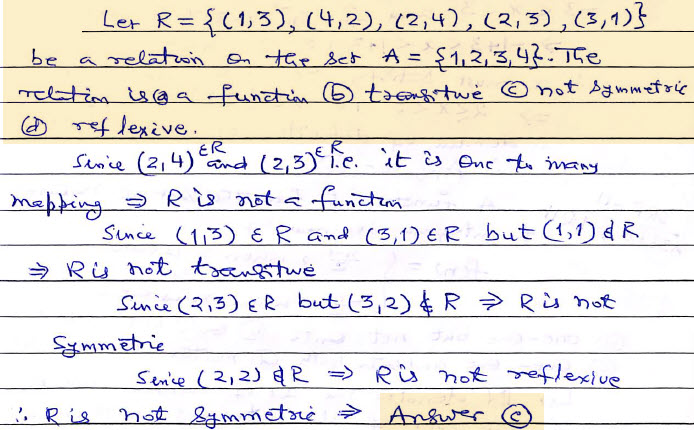 Let R = {(1,3), (4,2), (2,4), (2,3), (3,1)}
be a relation on the set A = {1,2,3,4}. The
relation is (a) a function (b) transitive (c) not symmetric
(d) reflexive.
Since (2,4) ∈ R and (2,3) ∈ R i.e. it is one to many
mapping ⇒ R is not a function
Since (1,3) ∈ R and (3,1) ∈ R but (1,1) ∉ R
⇒ R is not transitive
Since (2,3) ∈ R but (3,2) ∉ R ⇒ R is not
Symmetric
Since (2,2) ∉ R ⇒ R is not reflexive
∴ R is not symmetric ⇒ Answer (c)